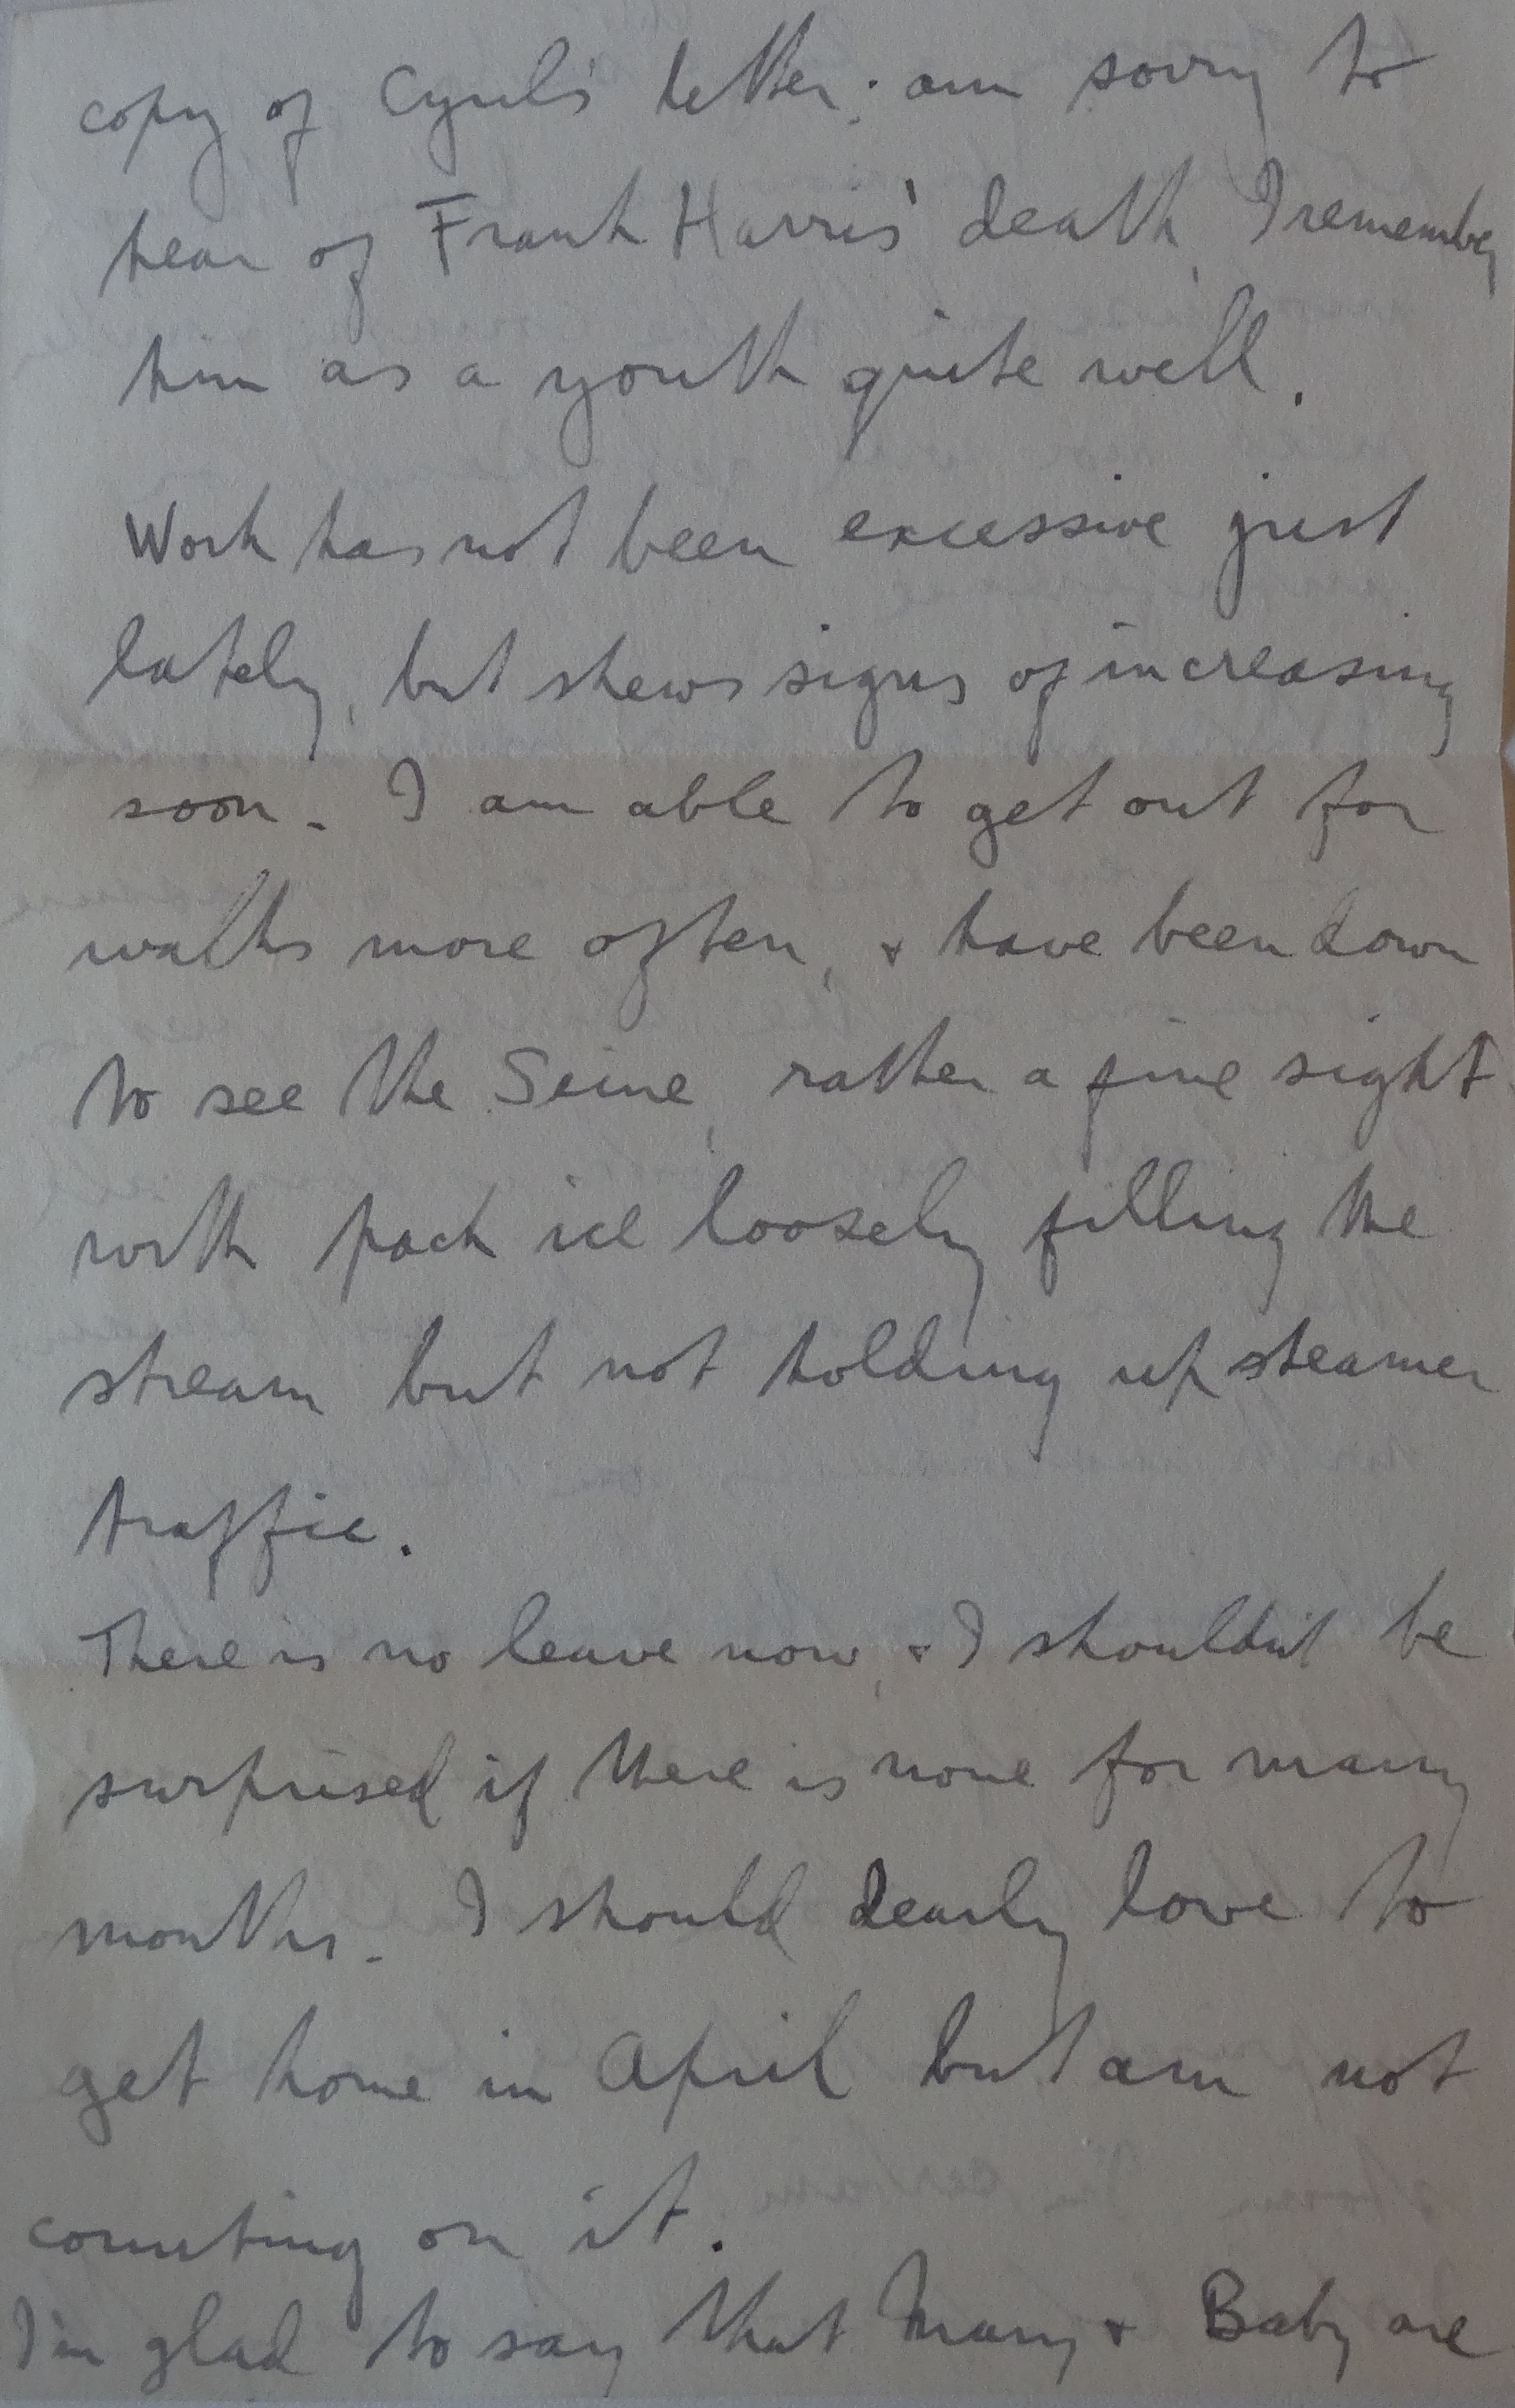 copy of Cyril's letter; am sorry to
hear of Frank Harris' death, I remember
him as a youth quite well.
Work has not been excessive just
lately, but shews signs of increasing
soon. I am able to get out for
walks more often, & have been down
to see the Seine, rather a fine sight
with pack ice loosely filling the
stream but not holding up steamer
traffic.
There is no leave now, & I shouldn't be
surprised if there is none for many
months. I should dearly love to
get home in April but am not
counting on it.
I'm glad to say that Mary & Baby are